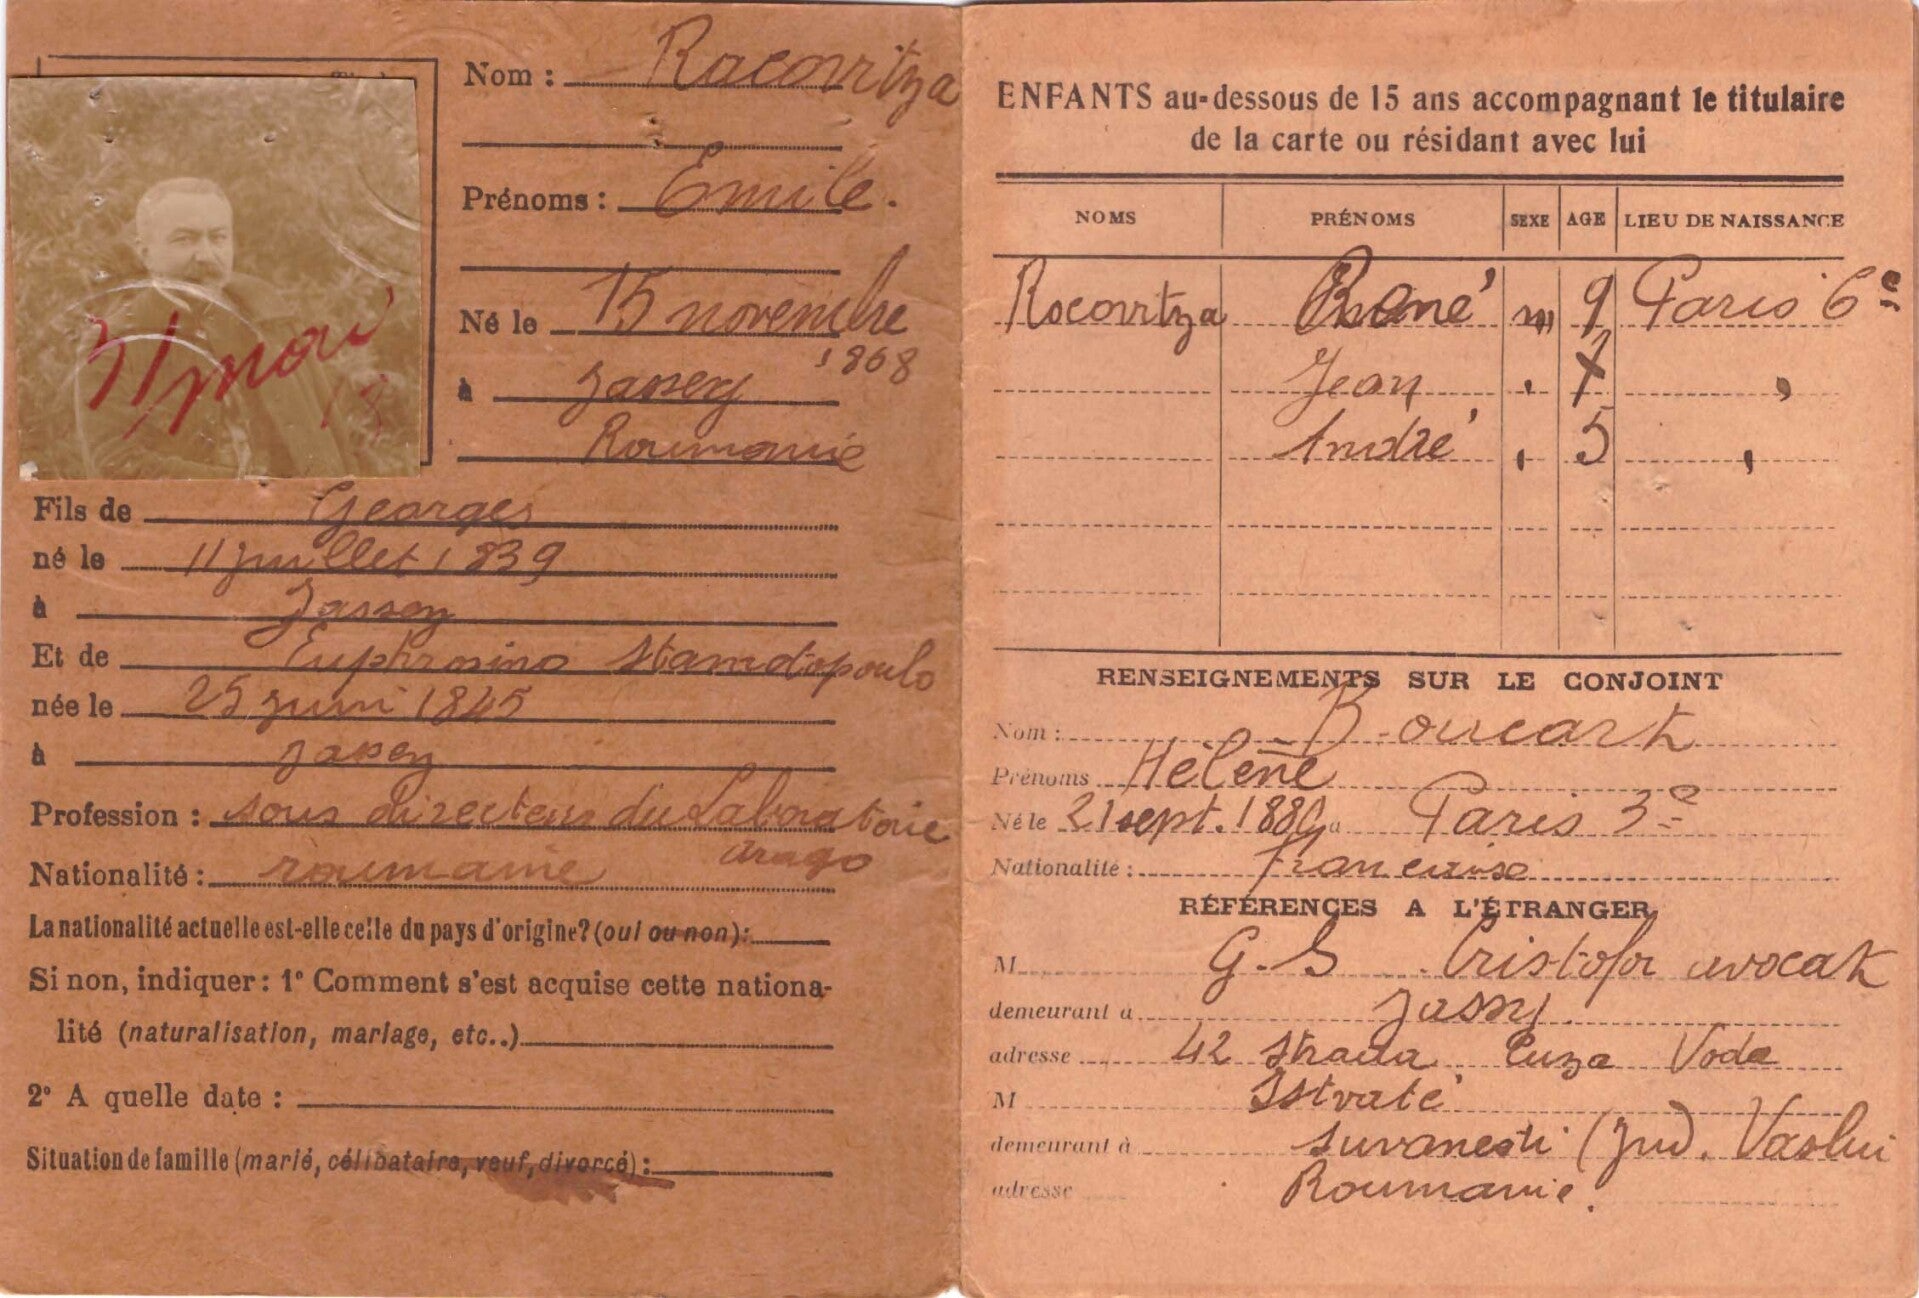 Nom : Racovitza
Prénoms : Emile.
Né le 15 novembre
1868
à Jassy
Roumanie
31 mai
Fils de Georges
né le 11 juillet 1839
à Jassy
Et de Euphrosino Stamatopoulo
née le 25 juin 1845
à Jassy
Profession : sous directeur du Laboratoire
Arago
Nationalité : roumaine
La nationalité actuelle est-elle celle du pays d'origine? (oui ou non) :
Si non, indiquer : 1° Comment s'est acquise cette nationa-
lité (naturalisation, mariage, etc..)
2° A quelle date :
Situation de famille (marié, célibataire, veuf, divorcé) :
ENFANTS au-dessous de 15 ans accompagnant le titulaire
de la carte ou résidant avec lui
NOMS PRÉNOMS SEXE AGE LIEU DE NAISSANCE
Racovitza René m 9 Paris 6e
Jean , 7 ,
André , 5 ,
RENSEIGNEMENTS SUR LE CONJOINT
Nom : Boucart
Prénoms Hélène
Né le 21 sept. 188 a Paris 3e
Nationalité : francaise
RÉFÉRENCES A L'ÉTRANGER
M G. S Cristofor avocat
demeurant à Jassy.
adresse 42 Strada Cuza Voda
M Istraté
demeurant à (jud. Vaslui
adresse Roumanie.